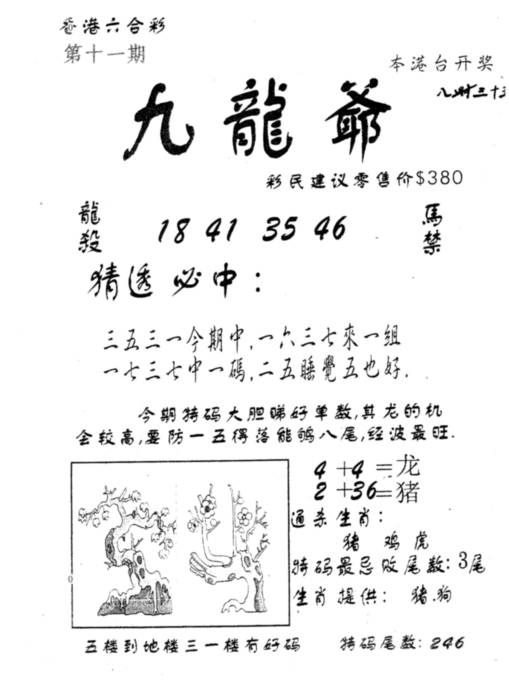 香港六合彩
第十一期
本港台开奖
九龍爺
彩民建议零售价$380
龍殺
18 41 35 46
馬禁
猜透必中：
三五三一今期中,一六三七來一組
一七三七中一碼,二五睡覺五也好.
今期特码大胆睇好单数,其龙的机
会较高,要防一五得落能够八尾,经波最旺.
4+4=龙
2+36=猪
通杀生肖：
猪 鸡 虎
特码最忌败尾数：3尾
生肖提供： 猪.狗
五楼到地楼三一楼有好码
特码尾数：246